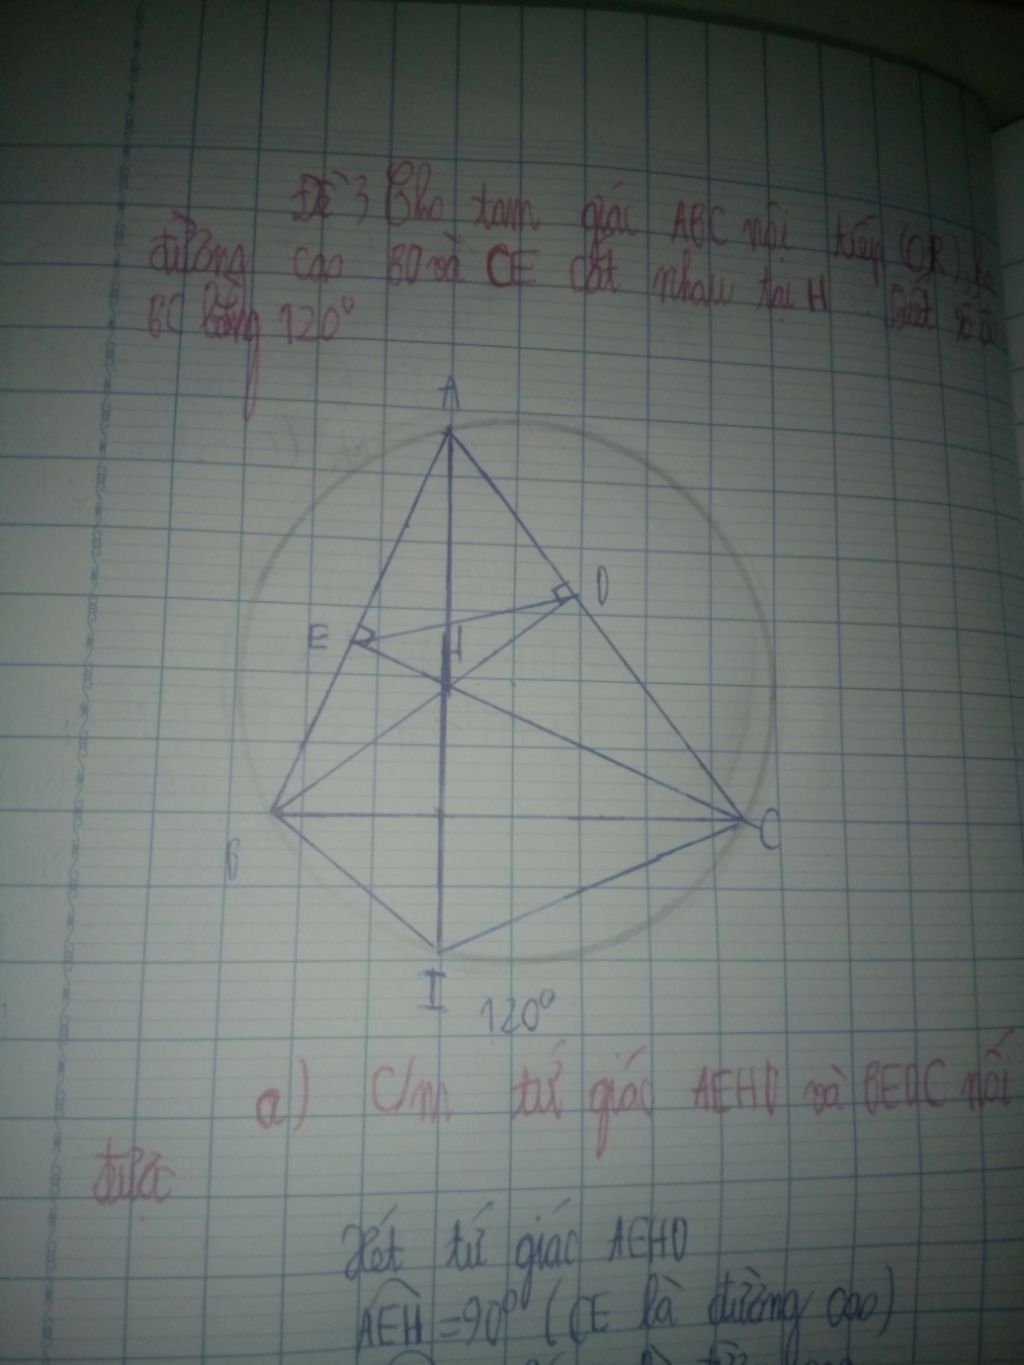 Đề 3 Cho tam giác ABC nội tiếp (O,R), hai
đường cao BD và CE cắt nhau tại H. Biết số đo
BC bằng 120°
A
E
D
H
B
C
I
120°
a) C/m tứ giác AEHD và BEDC nội
được
Xét tứ giác AEHD
AEH = 90° (CE là đường cao)